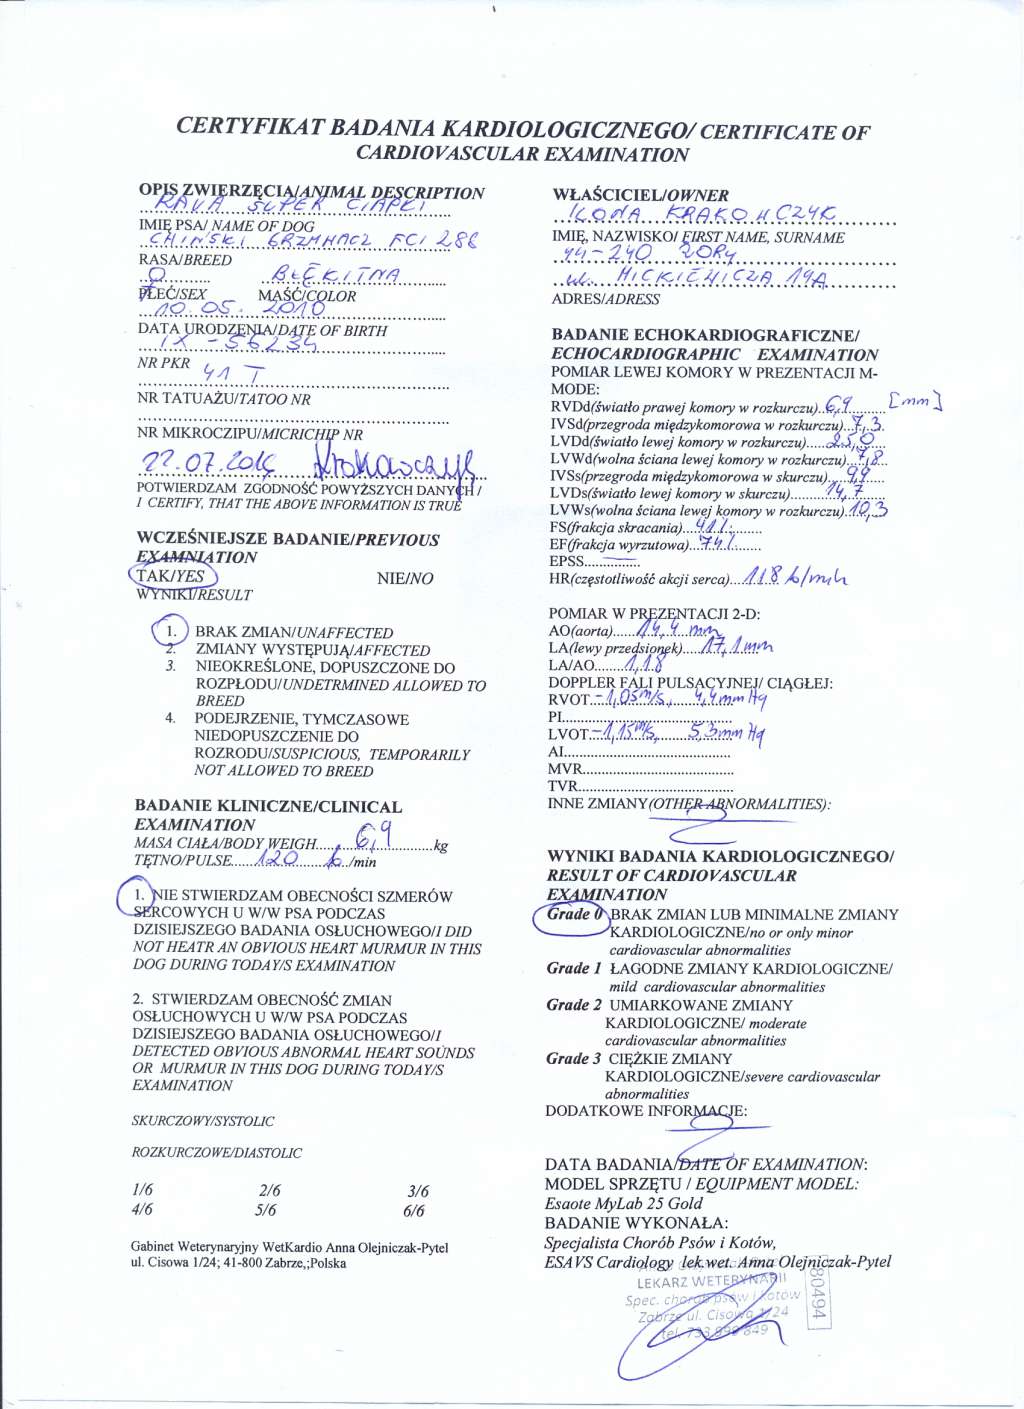 CERTYFIKAT BADANIA KARDIOLOGICZNEGO/ CERTIFICATE OF
CARDIOVASCULAR EXAMINATION
OPIS ZWIERZĘCIA/ANIMAL DESCRIPTION
RAVA SUPER CIAPKI
IMIĘ PSA/ NAME OF DOG
CHIŃSKI GRZYWACZ FCI 288
RASA/BREED
♀ BŁĘKITNA
PŁEĆ/SEX MAŚĆ/COLOR
10.05.2010
DATA URODZENIA/DATE OF BIRTH
IX - 56234
NR PKR
41 T
NR TATUAŻU/TATOO NR
NR MIKROCZIPU/MICRICHIP NR
22.07.2016
POTWIERDZAM ZGODNOŚĆ POWYŻSZYCH DANYCH /
I CERTIFY, THAT THE ABOVE INFORMATION IS TRUE
WCZEŚNIEJSZE BADANIE/PREVIOUS
EXAMNIATION
TAK/YES NIE/NO
WYNIKI/RESULT
1. BRAK ZMIAN/UNAFFECTED
2. ZMIANY WYSTĘPUJĄ/AFFECTED
3. NIEOKREŚLONE, DOPUSZCZONE DO
ROZPŁODU/UNDETRMINED ALLOWED TO
BREED
4. PODEJRZENIE, TYMCZASOWE
NIEDOPUSZCZENIE DO
ROZRODU/SUSPICIOUS, TEMPORARILY
NOT ALLOWED TO BREED
BADANIE KLINICZNE/CLINICAL
EXAMINATION
MASA CIAŁA/BODY WEIGH......6,9......kg
TĘTNO/PULSE......120 b/min
1. NIE STWIERDZAM OBECNOŚCI SZMERÓW
SERCOWYCH U W/W PSA PODCZAS
DZISIEJSZEGO BADANIA OSŁUCHOWEGO/I DID
NOT HEATR AN OBVIOUS HEART MURMUR IN THIS
DOG DURING TODAY/S EXAMINATION
2. STWIERDZAM OBECNOŚĆ ZMIAN
OSŁUCHOWYCH U W/W PSA PODCZAS
DZISIEJSZEGO BADANIA OSŁUCHOWEGO/I
DETECTED OBVIOUS ABNORMAL HEART SOUNDS
OR MURMUR IN THIS DOG DURING TODAY/S
EXAMINATION
SKURCZOWY/SYSTOLIC
ROZKURCZOWE/DIASTOLIC
1/6 2/6 3/6
4/6 5/6 6/6
Gabinet Weterynaryjny WetKardio Anna Olejniczak-Pytel
ul. Cisowa 1/24; 41-800 Zabrze,;Polska
WŁAŚCICIEL/OWNER
ILONA KRAKOWCZYK
IMIĘ, NAZWISKO/ FIRST NAME, SURNAME
44-240 ŻORY
ul. MICKIEWICZA 19A
ADRES/ADRESS
BADANIE ECHOKARDIOGRAFICZNE/
ECHOCARDIOGRAPHIC EXAMINATION
POMIAR LEWEJ KOMORY W PREZENTACJI M-
MODE:
RVDd(światło prawej komory w rozkurczu)..6,9...... [mm]
IVSd(przegroda międzykomorowa w rozkurczu)...7,3.
LVDd(światło lewej komory w rozkurczu).....25,0
LVWd(wolna ściana lewej komory w rozkurczu)...7,8..
IVSs(przegroda międzykomorowa w skurczu)....9,9....
LVDs(światło lewej komory w skurczu)........14,7
LVWs(wolna ściana lewej komory w rozkurczu).10,3
FS(frakcja skracania)...41%.......
EF(frakcja wyrzutowa)...74%.......
EPSS...............
HR(częstotliwość akcji serca)...118 b/min
POMIAR W PREZENTACJI 2-D:
AO(aorta)......14,4 mm
LA(lewy przedsionek).....17,1 mm
LA/AO........1,18
DOPPLER FALI PULSACYJNEJ/ CIĄGŁEJ:
RVOT..-1,05 m/s, 4,4 mm Hg
PI..........
LVOT..-1,15 m/s, 5,3 mm Hg
AI..........
MVR..........
TVR..........
INNE ZMIANY(OTHER ABNORMALITIES):
WYNIKI BADANIA KARDIOLOGICZNEGO/
RESULT OF CARDIOVASCULAR
EXAMINATION
Grade 0 BRAK ZMIAN LUB MINIMALNE ZMIANY
KARDIOLOGICZNE/no or only minor
cardiovascular abnormalities
Grade 1 ŁAGODNE ZMIANY KARDIOLOGICZNE/
mild cardiovascular abnormalities
Grade 2 UMIARKOWANE ZMIANY
KARDIOLOGICZNE/ moderate
cardiovascular abnormalities
Grade 3 CIĘŻKIE ZMIANY
KARDIOLOGICZNE/severe cardiovascular
abnormalities
DODATKOWE INFORMACJE:
DATA BADANIA/DATE OF EXAMINATION:
MODEL SPRZĘTU / EQUIPMENT MODEL:
Esaote MyLab 25 Gold
BADANIE WYKONAŁA:
Specjalista Chorób Psów i Kotów,
ESAVS Cardiology lek.wet. Anna Olejniczak-Pytel
LEKARZ WETERYNARII
Spec. chorób psów i kotów
Zabrze ul. Cisowa 1/24
tel. 733 999 849
80494